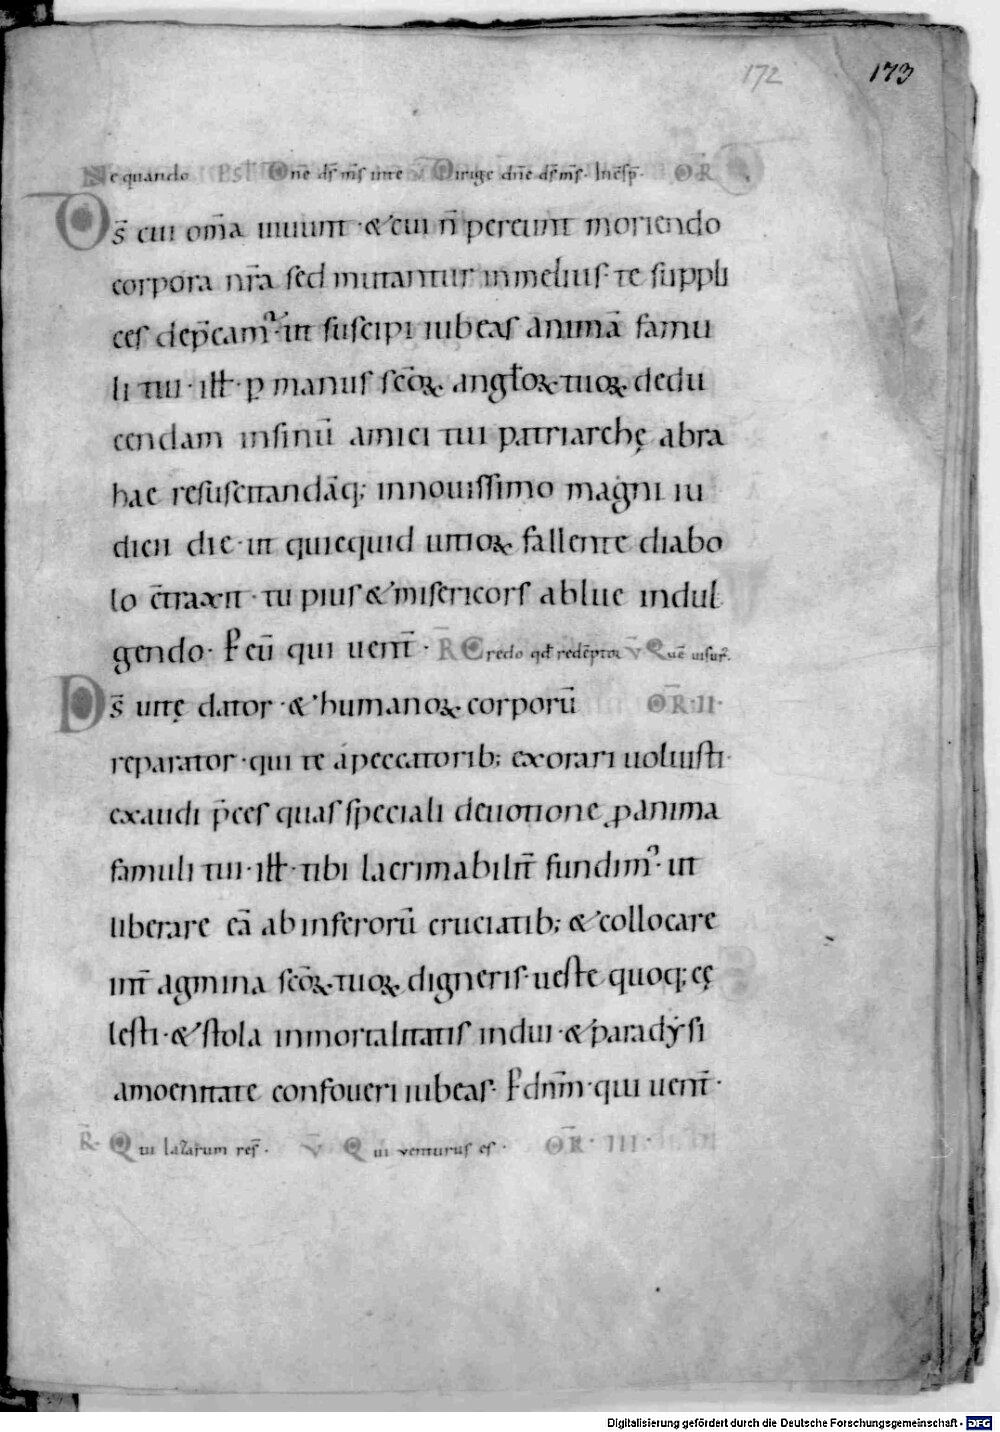 172 173
Ne quando PSL Dñe ds ms uite V Dirige dñe ds ms. In c̄sp̄. OR̄
Ds̄ cui om̄a uiuunt · & cui n̄ pereunt moriendo
corpora nr̄a sed mutantur in melius · te suppli
ces dep̄camꝰ · ut suscipi iubeas animā famu
li tui · ill · p manus sc̄oꝝ angl̄oꝝ tuoꝝ dedu
cendam insinū amici tui patriarchę abra
hae resuscitandāq; innouissimo magni iu
dicii die · ut quicquid uitioꝝ fallente diabo
lo c̄traxit · tu pius & misericors ablue indul
gendo · P eū qui uent̄ · R̄ Credo qd redēptor V̄ Quē uisur̄.
Ds̄ uitę dator · & humanoꝝ corporū OR̄ · II ·
reparator · qui te a peccatorib; exorari uoluisti ·
exaudi p̄ces quas speciali deuotione ꝓ anima
famuli tui · ill · tibi lacrimabilit̄ fundimꝰ · ut
liberare eā ab inferorū cruciatib; & collocare
int̄ agmina sc̄oꝝ tuoꝝ digneris · ueste quoq; cę
lesti · & stola inmortalitatis indui · & paradẏsi
amoenitate confoueri iubeas · P dn̄m · qui uent̄ ·
R̄ · Qui lazarum res̄ · V̄ Qui venturus es · OR̄ · III ·
Digitalisierung gefördert durch die Deutsche Forschungsgemeinschaft - DFG